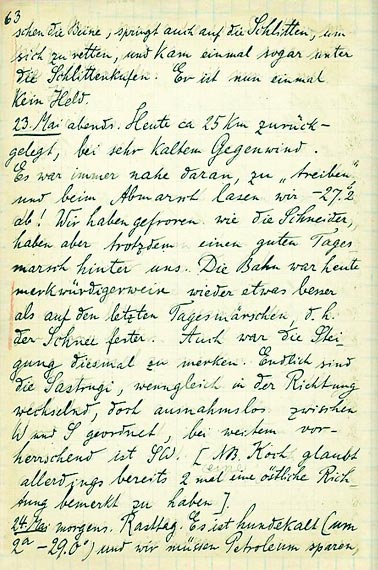 63
schen die Beine, springt auch auf die Schlitten, um
sich zu retten, und kam einmal sogar unter
die Schlittenkufen. Er ist nun einmal
kein Held.
23. Mai abends. Heute ca 25 km zurück-
gelegt, bei sehr kaltem Gegenwind.
Es war immer nahe daran, zu „treiben"
und beim Abmarsch lasen wir -27.2
ab! Wir haben gefroren wie die Schneider,
haben aber trotzdem einen guten Tages
marsch hinter uns. Die Bahn war heute
merkwürdigerweise wieder etwas besser
als auf den letzten Tagesmärschen, d. h.
der Schnee fester. Auch war die Stei
gung diesmal zu merken. Endlich sind
die Sastrugi, wenngleich in der Richtung
wechselnd, doch ausnahmslos zwischen
W und S geordnet, bei weitem vor-
herrschend ist SW. [NB. Koch glaubt
allerdings bereits 2 mal eine östliche Rich-
tung bemerkt zu haben].
24. Mai morgens. Rasttag. Es ist hundekalt (um
2ª -29.0°) und wir müssen Petroleum sparen,